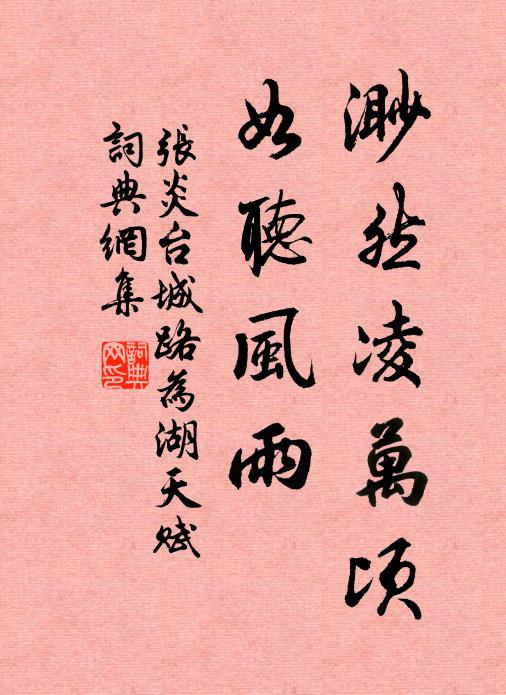 渺然凌萬頃
如聽風雨
張炎台城路為湖天賦
詞典網集
詞典網印